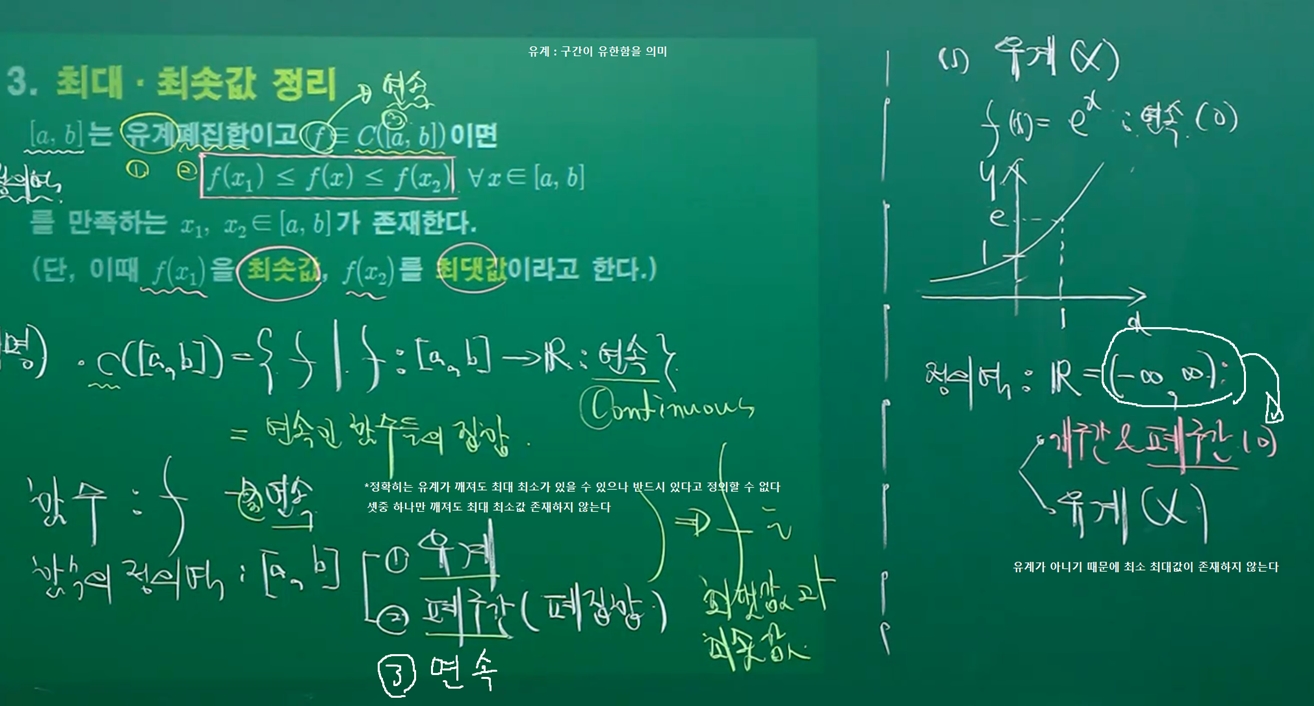 유계 : 구간이 유한함을 의미
3. 최대 · 최솟값 정리
연속
③
[a, b]는 유계폐집합이고 f ∈ C([a, b])이면
① ②
f(x₁) ≤ f(x) ≤ f(x₂) ∀x∈[a, b]
를 만족하는 x₁, x₂∈[a, b]가 존재한다.
(단, 이때 f(x₁)을 최솟값, f(x₂)를 최댓값이라고 한다.)
· C([a, b]) = { f | f : [a, b] → ℝ : 연속 }
Continuous
= 연속인 함수들의 집합.
함수 : f
③ 연속
*정확히는 유계가 깨져도 최대 최소가 있을 수 있으나 반드시 있다고 정의할 수 없다
셋중 하나만 깨져도 최대 최소값 존재하지 않는다
함수의 정의역 : [a, b]
① 유계
② 폐구간 (폐집합)
③ 연속
⇒ f는
최댓값과
최솟값
(1) 유계 (X)
f(x) = eˣ : 연속 (O)
y
e
1
1
x
정의역 : ℝ = (-∞, ∞) :
개구간 & 폐구간 (O)
유계 (X)
유계가 아니기 때문에 최소 최대값이 존재하지 않는다